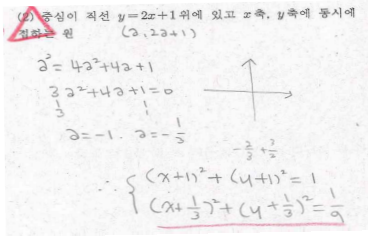 (2) 중심이 직선 y=2x+1위에 있고 x축, y축에 동시에
접하는 원 (a, 2a+1)
a²= 4a²+4a+1
3a²+4a+1=0
1/3 1
a=-1. a=-1/3
-2/3 + 3/3
∴ { (x+1)²+(y+1)²=1
(x+1/3)²+(y+1/3)²=1/9